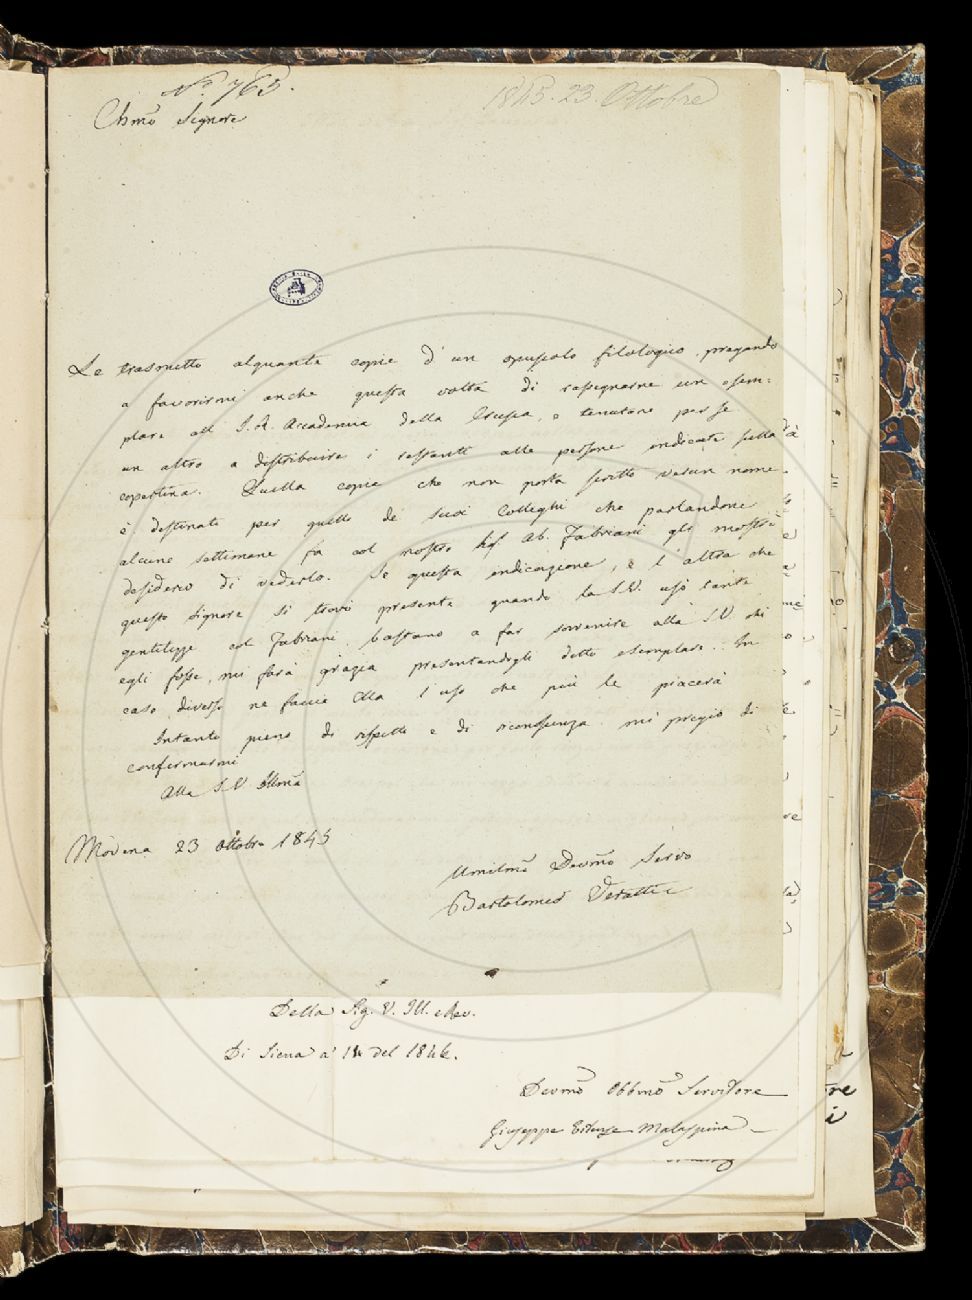 N.° 763.
1845. 23. Ottobre
Chmo Signore
Le trasmetto alquante copie d'un opuscolo filologico, pregando
a favorirmi anche questa volta di rassegnarne un esem-
plare all' I. R. Accademia della Crusca, e tenutone per se
un altro a distribuire i restanti alle persone indicate sulla
copertina. Quella copia che non porta scritto verun nome
è destinata per quello de' suoi Colleghi che parlandone
alcune settimane fa col nostro Ab. Fabriani gli mostrò
desiderio di vederlo. Se questa indicazione, e l'altra che
questo signore si trovò presente quando la S.V. usò tante
gentilezze col Fabriani bastano a far sovvenire alla S.V. chi
egli fosse, mi farà grazia presentandogli detto esemplare. In
caso diverso ne faccia Ella l'uso che più le piacerà
Intanto pieno di rispetto e di riconoscenza mi pregio di
confermarmi
Alla S.V. Illma
Modena 23 Ottobre 1845
Umilmo Devmo Servo
Bartolomeo Veratti
Della Sig. V. Ill.
Di Siena a' 14 del 1846.
Devmo Obbmo Servitore
Giuseppe Malaspina